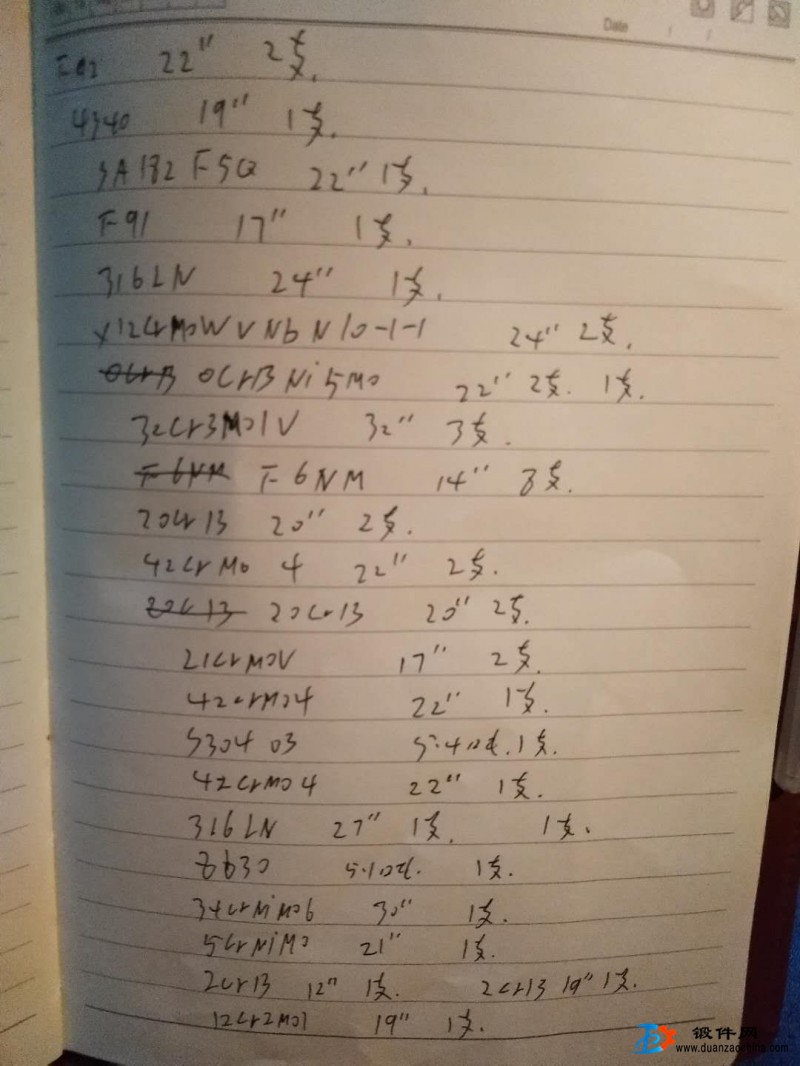 Date / /
F92 22" 2支.
4340 19" 1支.
SA182 F5a 22" 1支.
F91 17" 1支.
316LN 24" 1支.
X12CrMoWVNbN10-1-1 24" 2支.
0Cr13 0Cr13Ni5Mo 22" 2支. 1支.
32Cr3Mo1V 32" 3支.
F6NM F6NM 14" 8支.
20Cr13 20" 2支.
42CrMo4 22" 2支.
20Cr13 20Cr13 20" 2支.
21CrMoV 17" 2支.
42CrMo4 22" 1支.
S30403 5.4吨.1支.
42CrMo4 22" 1支.
316LN 27" 1支. 1支.
8630 5.1吨. 1支.
34CrNiMo6 30" 1支.
5CrNiMo 21" 1支.
2Cr13 12" 1支. 2Cr13 19" 1支.
12Cr2Mo1 19" 1支.
锻件网